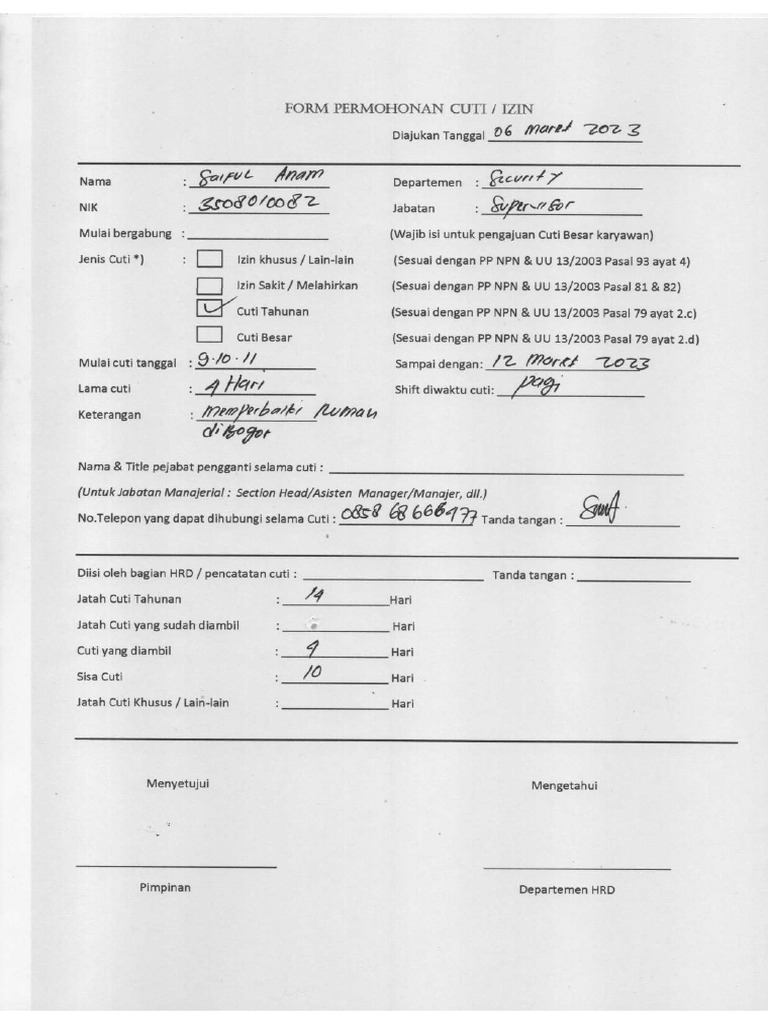 FORM PERMOHONAN CUTI / IZIN
Diajukan Tanggal 06 Maret 2023
Nama : Saiful Anam Departemen : Security
NIK : 3508010082 Jabatan : Supervisor
Mulai bergabung : (Wajib isi untuk pengajuan Cuti Besar karyawan)
Jenis Cuti *) : Izin khusus / Lain-lain (Sesuai dengan PP NPN & UU 13/2003 Pasal 93 ayat 4)
Izin Sakit / Melahirkan (Sesuai dengan PP NPN & UU 13/2003 Pasal 81 & 82)
Cuti Tahunan (Sesuai dengan PP NPN & UU 13/2003 Pasal 79 ayat 2.c)
Cuti Besar (Sesuai dengan PP NPN & UU 13/2003 Pasal 79 ayat 2.d)
Mulai cuti tanggal : 9.10.11 Sampai dengan: 12 Maret 2023
Lama cuti : 4 Hari Shift diwaktu cuti: pagi
Keterangan : Memperbaiki Rumah
di Bogor
Nama & Title pejabat pengganti selama cuti :
(Untuk Jabatan Manajerial : Section Head/Asisten Manager/Manajer, dll.)
No.Telepon yang dapat dihubungi selama Cuti : Tanda tangan :
Diisi oleh bagian HRD / pencatatan cuti : Tanda tangan :
Jatah Cuti Tahunan : 14 Hari
Jatah Cuti yang sudah diambil : Hari
Cuti yang diambil : 4 Hari
Sisa Cuti : 10 Hari
Jatah Cuti Khusus / Lain-lain : Hari
Menyetujui Mengetahui
Pimpinan Departemen HRD